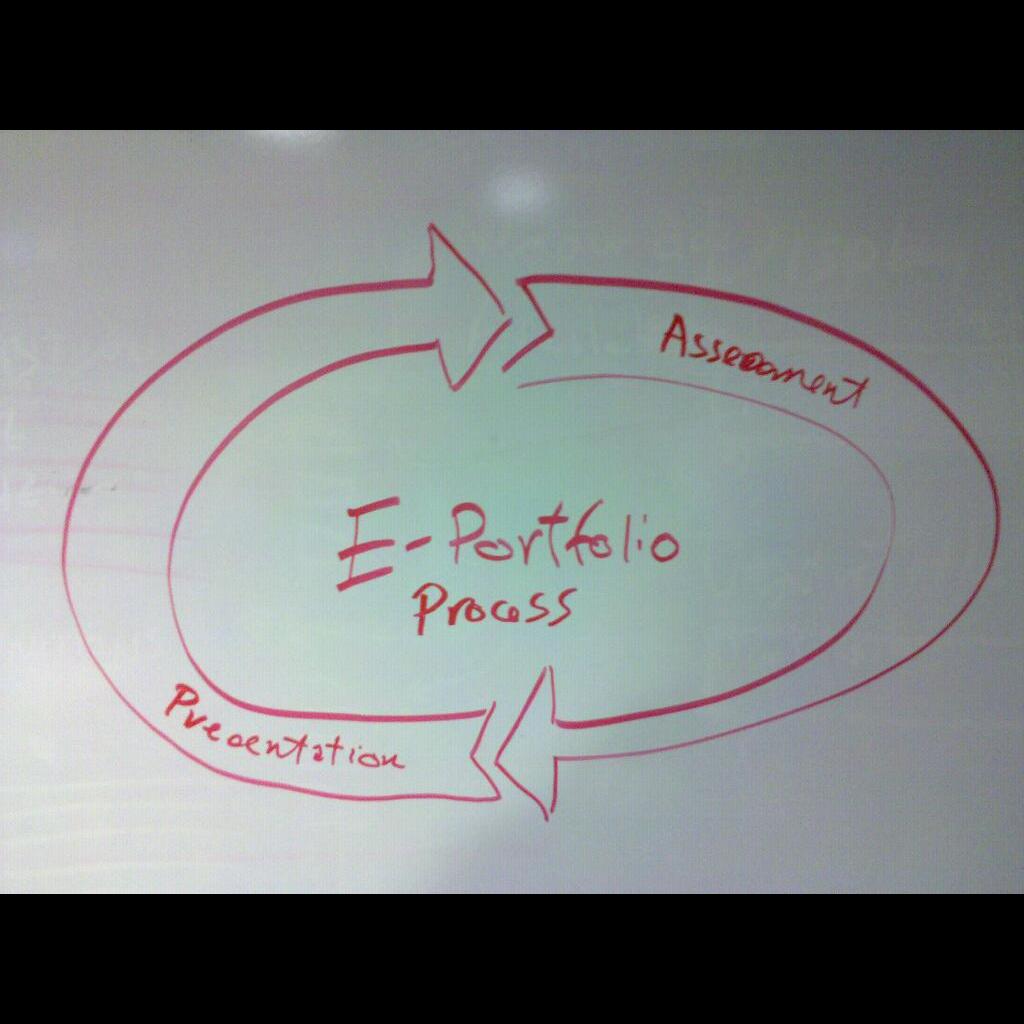 Assessment
E-Portfolio
Process
Presentation